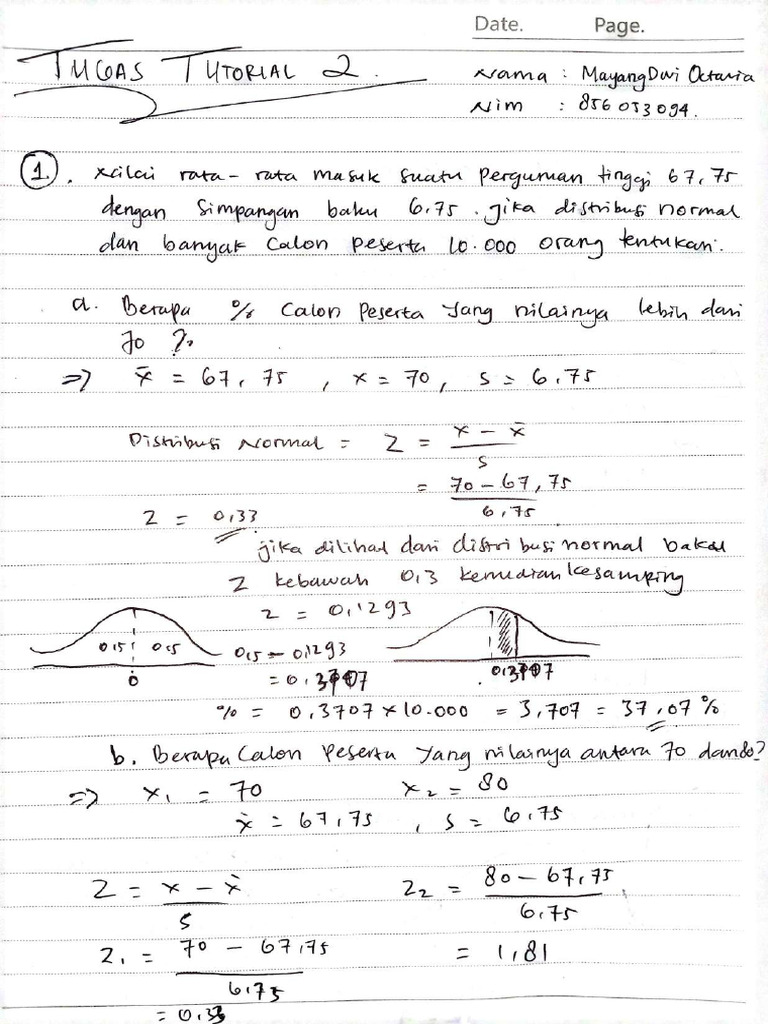 Date. Page.
TUGAS TUTORIAL 2.
Nama : Mayang Dwi Octavia
Nim : 856053094.
1. Nilai rata-rata masuk suatu perguruan tinggi 67,75
dengan simpangan baku 6.75. jika distribusi normal
dan banyak calon peserta 10.000 orang tentukan.
a. Berapa % calon peserta yang nilainya lebih dari
70 ?
=> x̄ = 67,75 , x = 70, s = 6.75
Distribusi Normal = Z = x - x̄ / s
= 70 - 67,75 / 6,75
Z = 0,33
jika dilihat dari distribusi normal baku
Z kebawah 0,3 kemudian kesamping
z = 0,1293
0,5 0,5 0,5 - 0,1293
0 = 0,3707 0,3707
% = 0,3707 x 10.000 = 3,707 = 37,07 %
b. Berapa calon peserta yang nilainya antara 70 dan 80?
=> x₁ = 70 x₂ = 80
x̄ = 67,75 , s = 6,75
Z = x - x̄ / s Z₂ = 80 - 67,75 / 6,75
Z₁ = 70 - 67,75 / 6,75 = 1,81
= 0,33